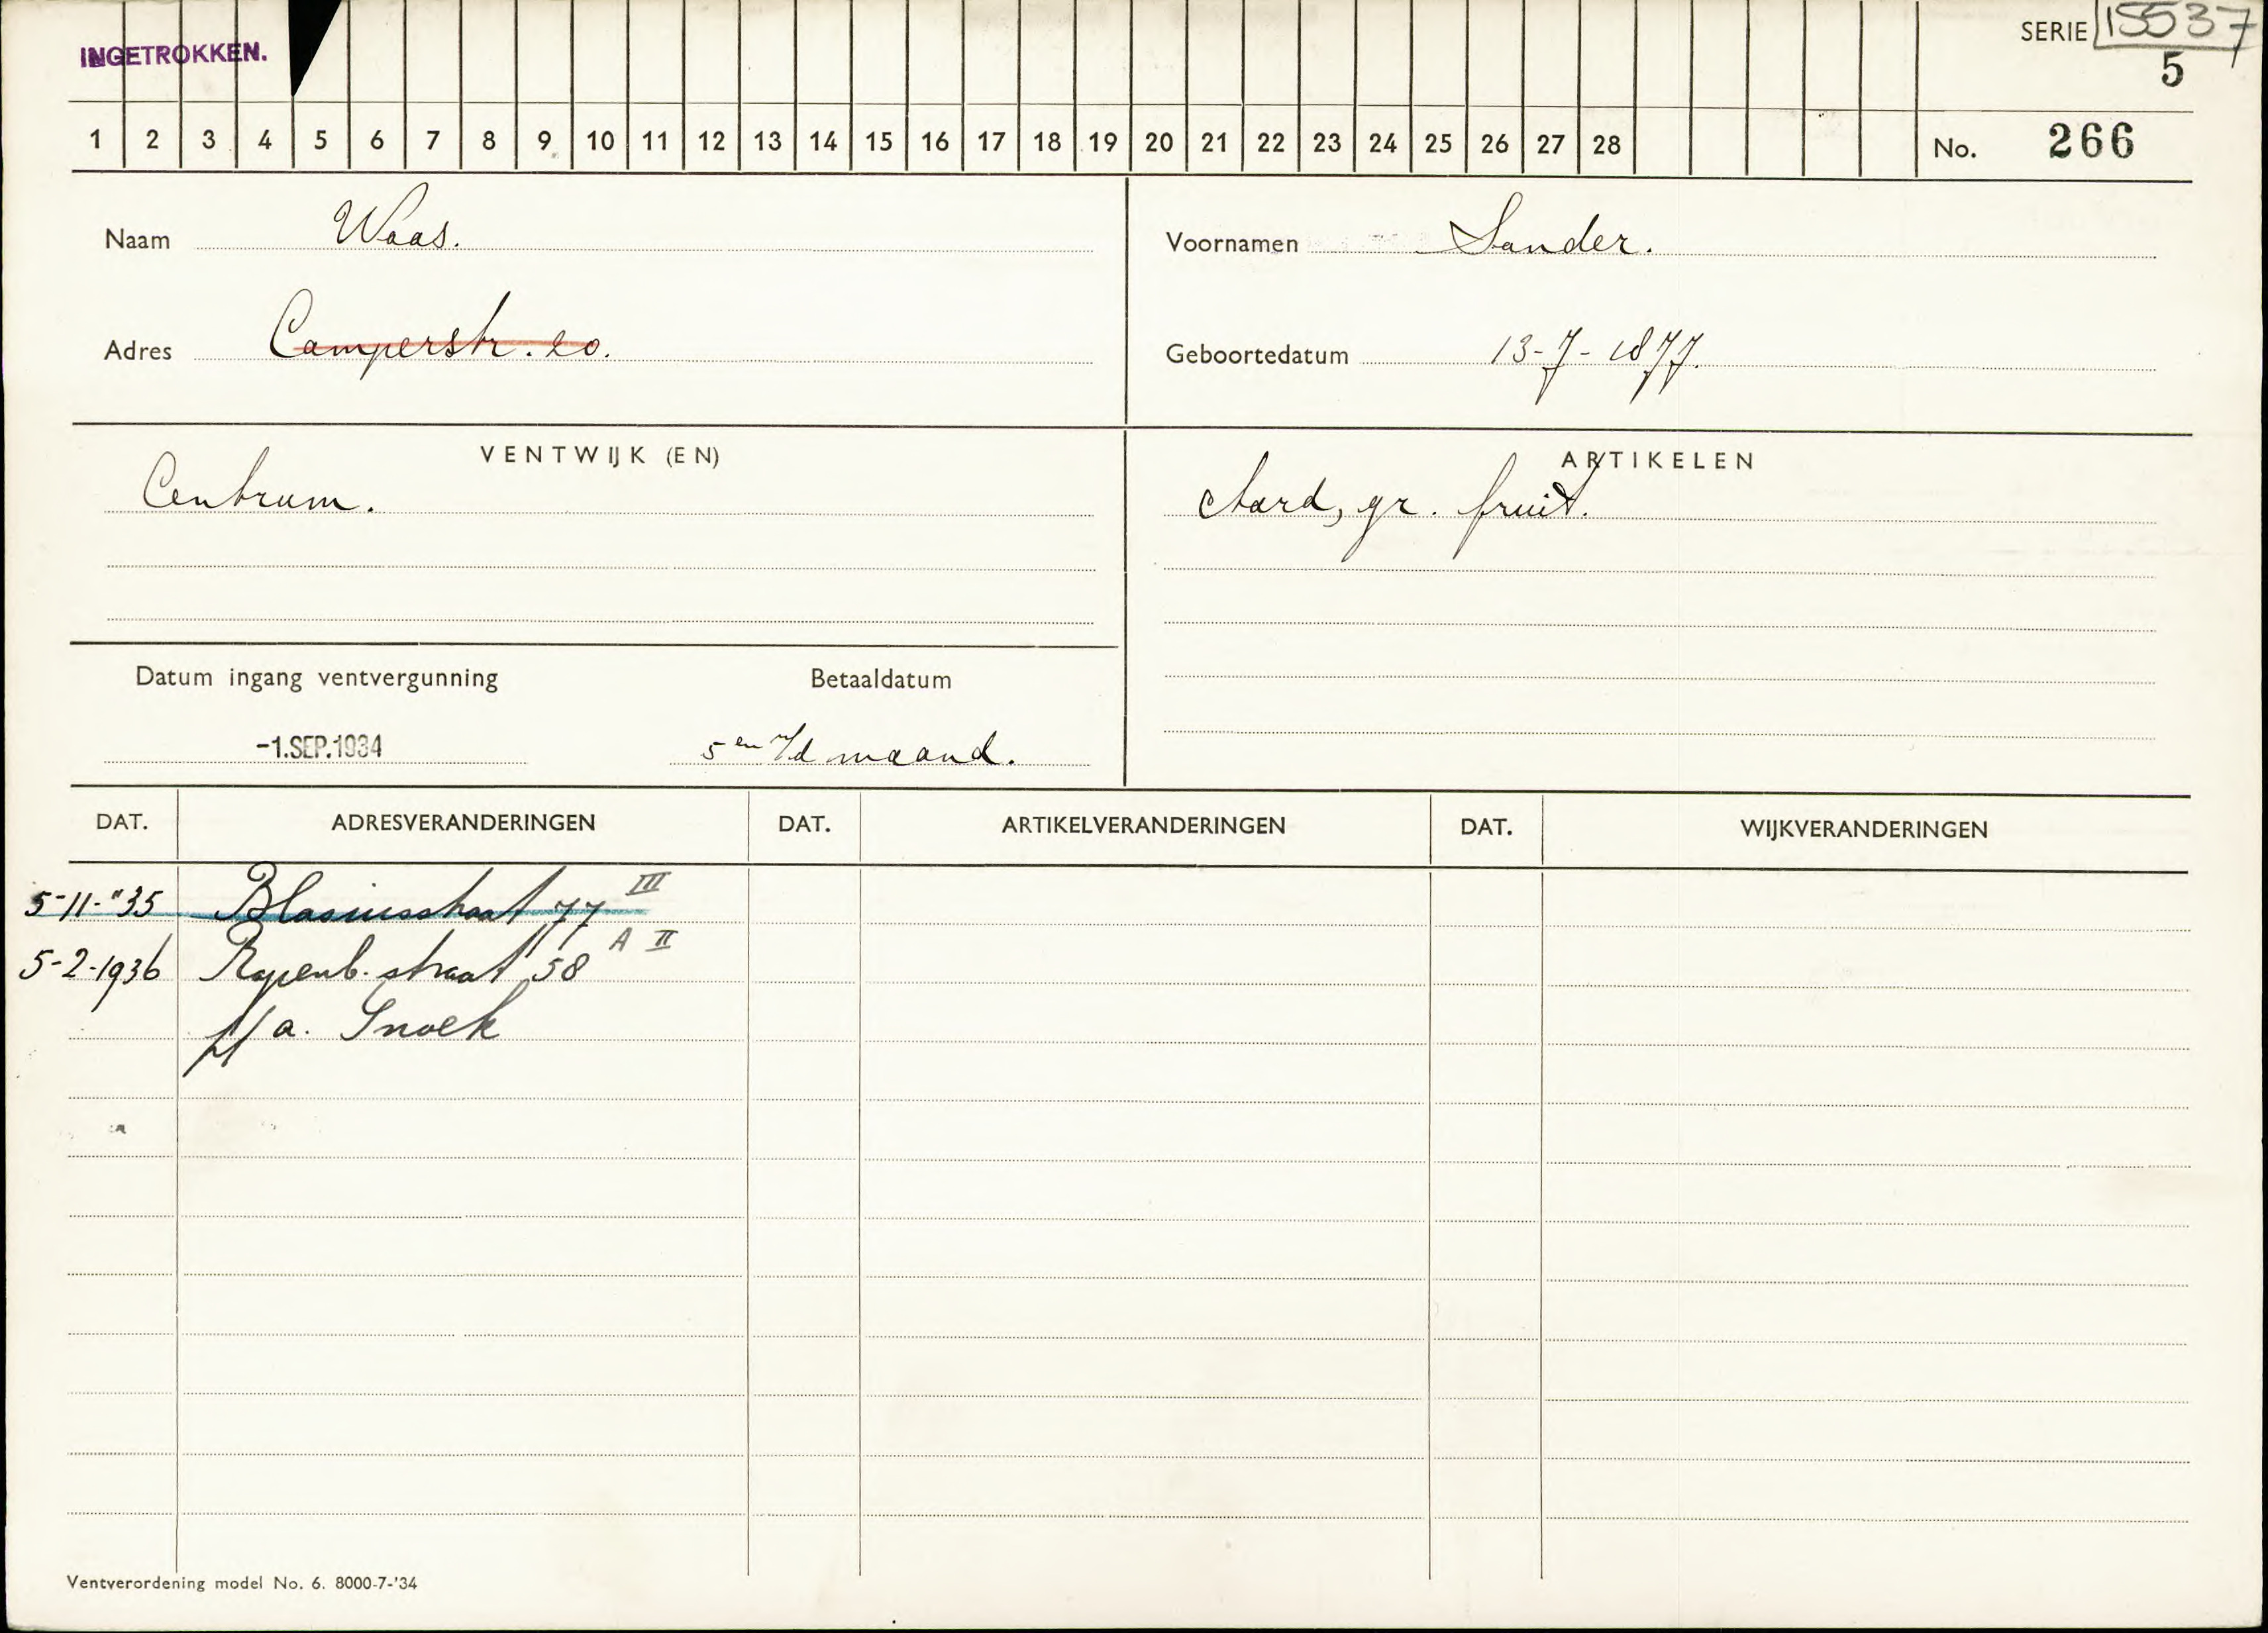 INGETROKKEN.
SERIE 15537
5
1 2 3 4 5 6 7 8 9 10 11 12 13 14 15 16 17 18 19 20 21 22 23 24 25 26 27 28
No. 266
Naam Waas.
Voornamen Sander.
Adres Camperstr. 20.
Geboortedatum 13-7-1877.
VENTWIJK (EN)
Centrum.
ARTIKELEN
Aard, gr. fruit.
Datum ingang ventvergunning
Betaaldatum
-1.SEP.1934
5en v/d maand.
DAT. ADRESVERANDERINGEN DAT. ARTIKELVERANDERINGEN DAT. WIJKVERANDERINGEN
5-11-"35 Blasiusstraat 77 III
5-2-1936 Rapenb. straat 58 A II
p/a. Snoek
Ventverordening model No. 6. 8000-7-'34